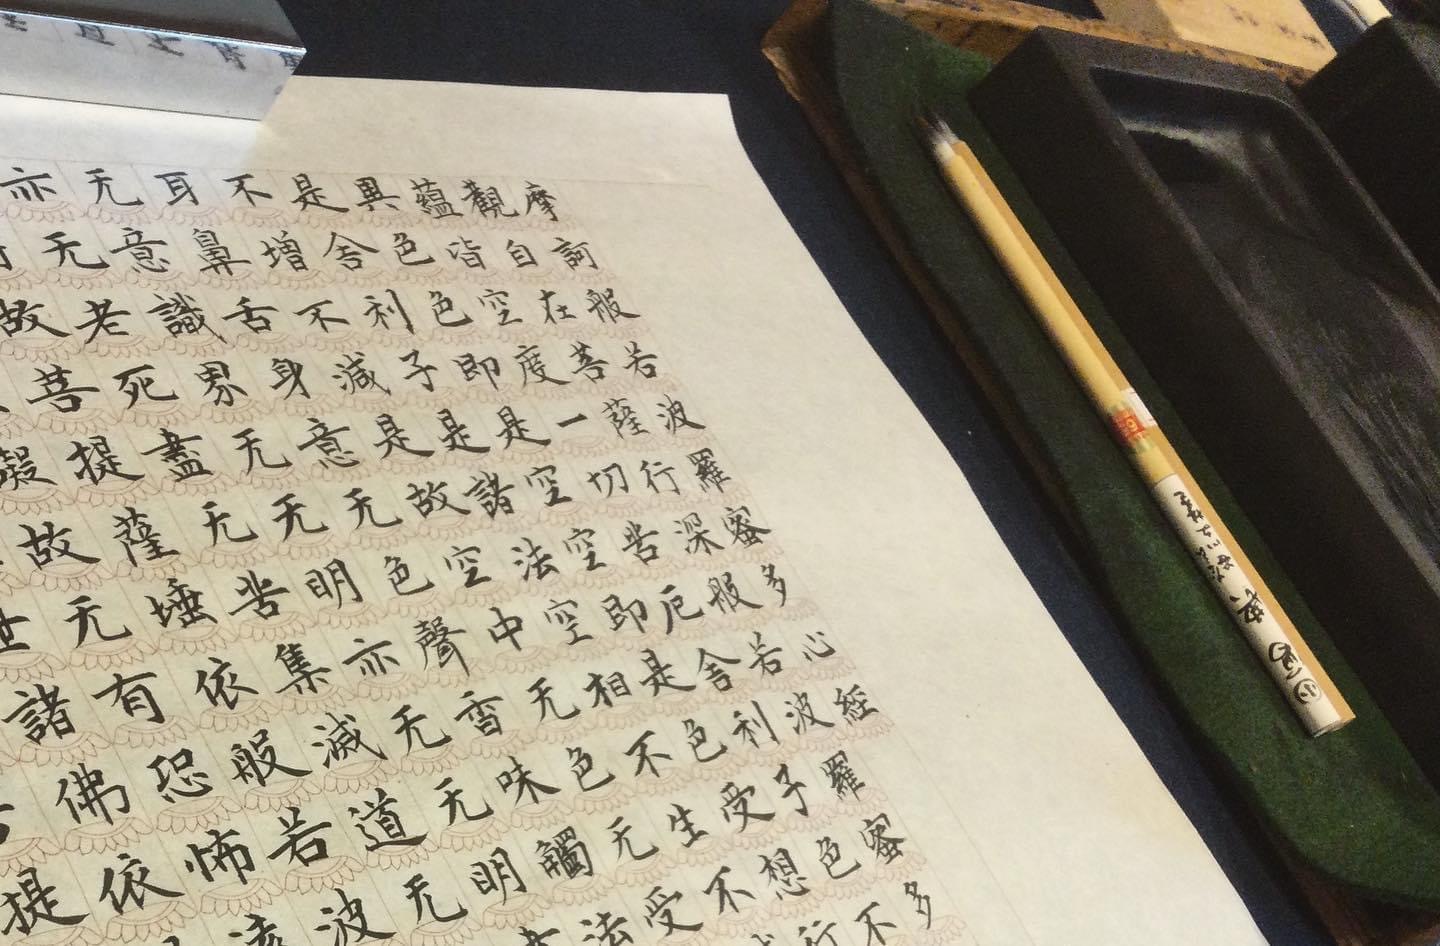 摩訶般若波羅蜜多心經
觀自在菩薩行深般若波羅蜜多
蘊皆空度一切苦厄舍利子色不
異色色即是空空即是色受想行
是舍利子是諸法空相不生不
不増不減是故空中无色无受
耳鼻舌身意无色聲香味觸法
无意識界无无明亦无无明
亦无老死盡无苦集滅道无
故菩提薩埵依般若波
礙故无有恐怖遠
世諸佛依
提